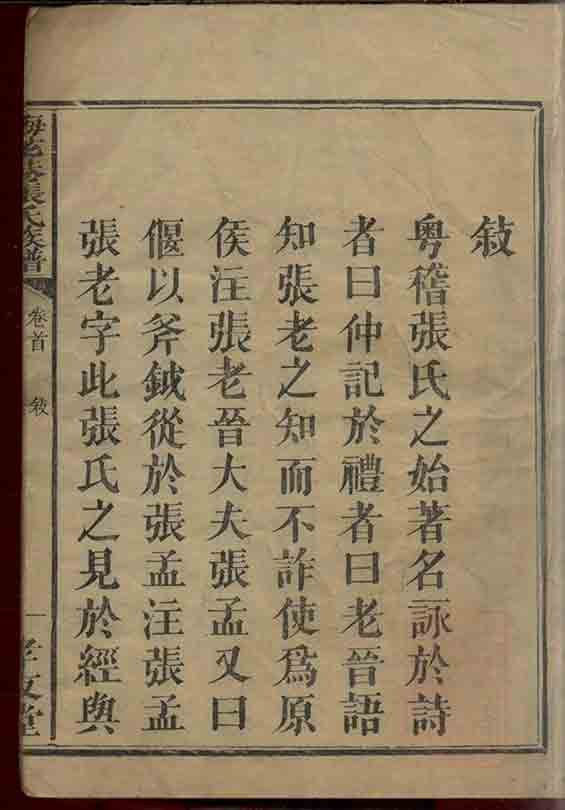 敍
粵稽張氏之始著名詠於詩
者曰仲記於禮者曰老晉語
知張老之知而不詐使爲原
侯注張老晉大夫張孟又曰
偃以斧鉞從於張孟注張孟
張老字此張氏之見於經與
張氏族譜
卷首
敍
一
孝友堂